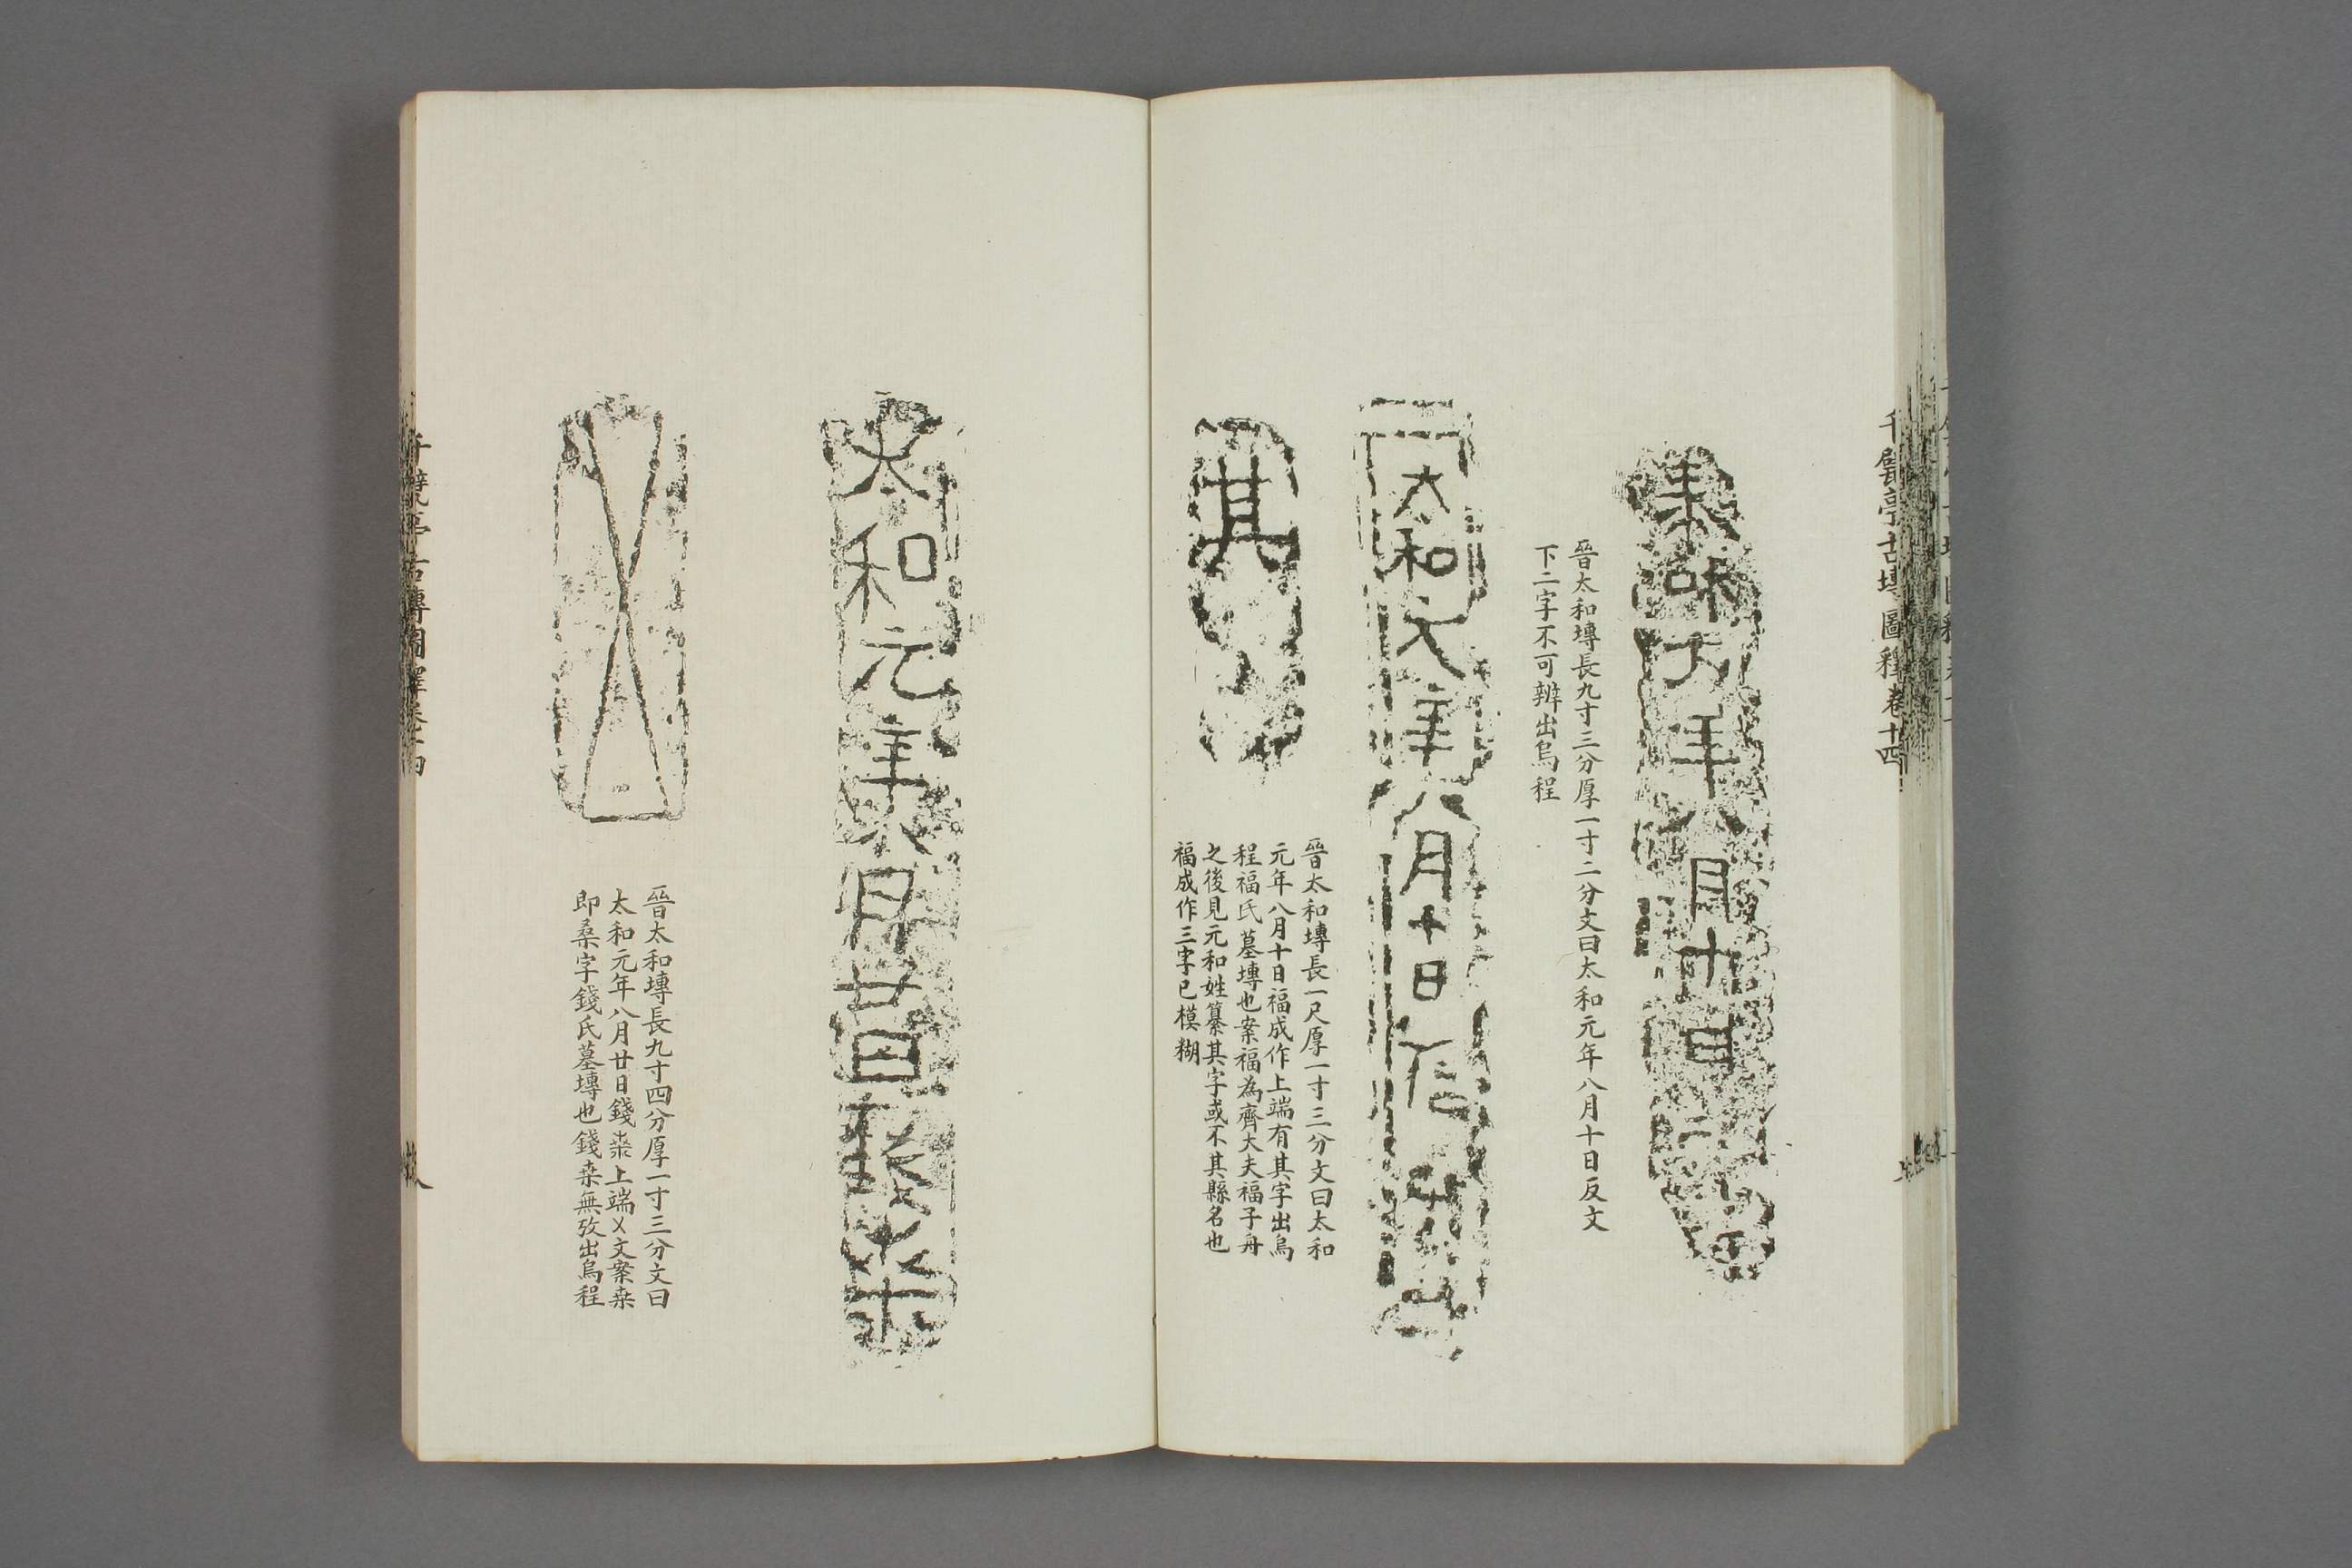 千甓亭古塼圖釋卷十四
晉太和塼長九寸三分厚一寸二分文曰太和元年八月十日反文
下二字不可辨出烏程
太和元年八月十日
其
晉太和塼長一尺厚一寸三分文曰太和
元年八月十日福成作上端有其字出烏
程福氏墓塼也案福為齊大夫福子舟
之後見元和姓纂其字或不其縣名也
福成作三字已模糊
太和元年八月廿日錢桒
晉太和塼長九寸四分厚一寸三分文曰
太和元年八月廿日錢桒上端乂文案桒
即桑字錢氏墓塼也錢桒無攷出烏程
千甓亭古塼圖釋卷十四